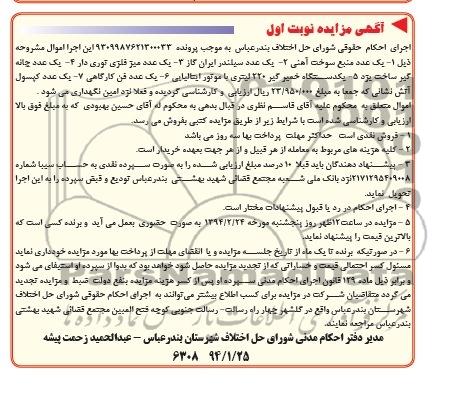 آگهی مزایده نوبت اول
اجرای احکام حقوقی شورای حل اختلاف بندرعباس به موجب پرونده ۹۳۰۹۹۸۷۶۲۱۳۰۰۰۳۳ این اجرا اموال مشروحه
ذیل ۱- یک عدد منبع سوخت آهنی ۲- یک عدد سیلندر ایران گاز ۳- یک عدد میز فلزی توری دار ۴- یک عدد چانه
گیر ساخت یزد ۵- یکدستگاه خمیر گیر ۲۲۰ لیتری با موتور ایتالیایی ۶- یک عدد فن کارگاهی ۷- یک عدد کپسول
آتش نشانی که جمعا به مبلغ ۲۳/۹۵۰/۰۰۰ ریال ارزیابی و کارشناسی گردیده و فعلا نزد امین نگهداری می شود .
اموال متعلق به محکوم علیه آقای قاسم نظری در قبال بدهی به محکوم له آقای حسین بهبودی که به مبلغ فوق بالا
ارزیابی و کارشناسی شده است با شرایط زیر از طریق مزایده کتبی بفروش می رسد.
۱ - فروش نقدی است حداکثر مهلت پرداخت بها سه روز می باشد
۲ - کلیه هزینه های مربوط به معامله از هر قبیل و از هر جهت بعهده خریدار است.
۳ - پیشنهاد دهندگان باید قبلا ۱۰ درصد مبلغ ارزیابی شده را به صورت سپرده نقدی به حساب سیبا شماره
۲۱۷۱۲۹۵۴۰۹۰۰۸ نزد بانک ملی شعبه مجتمع قضائی شهید بهشتی بندرعباس تودیع و قبض سپرده را به این اجرا
تحویل نماید.
۴ - اجرای احکام در رد یا قبول پیشنهادات مختار است.
۵ - مزایده در ساعت ۱۲ظهر روز پنجشنبه مورخه ۱۳۹۴/۲/۲۴ به صورت حضوری بعمل می آید و برنده کسی است که
بالاترین قیمت را پیشنهاد نماید.
۶ - در صورتیکه برنده تا یک ماه از تاریخ جلسه مزایده و یا انقضای مهلت از پرداخت بها مورد مزایده خودداری نماید
مسئول کسر احتمالی قیمت و خساراتی که از تجدید مزایده حاصل شود خواهد بود که بدوا از سپرده او استیفای می شود
و برابر ذیل ماده ۱۲۹ قانون اجرای احکام مدنی سپرده او پس از کسر هزینه مزایده بنفع دولت ضبط و مزایده تجدید
می گردد متقاضیان شرکت در مزایده برای کسب اطلاع بیشتر می‌توانند به اجرای احکام حقوقی شورای حل اختلاف
شهرستان بندرعباس واقع در گلشهر چهار راه رسالت - رسالت جنوبی کوچه فتح المبین مجتمع قضائی شهید بهشتی
بندرعباس مراجعه نمایند.
مدیر دفتر احکام مدنی شورای حل اختلاف شهرستان بندرعباس - عبدالحمید زحمت پیشه
۹۴/۱/۲۵ ۶۳۰۸